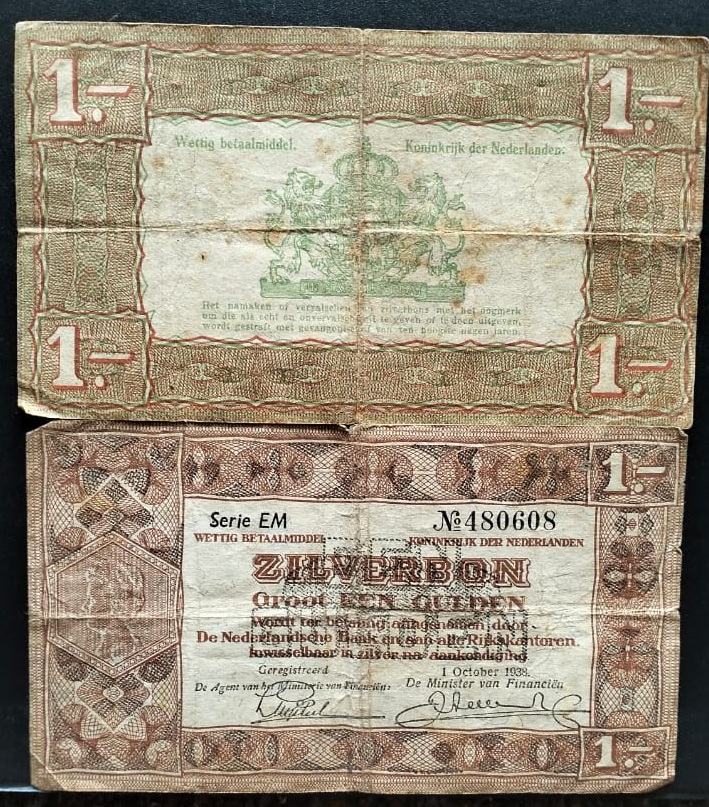 1.- 1.-
Wettig betaalmiddel. Koninkrijk der Nederlanden.
Het namaken of vervalschen van zilverbons met het oogmerk
om die als echt en onvervalscht uit te geven of te doen uitgeven,
wordt gestraft met gevangenisstraf van ten hoogste negen jaren.
1.- 1.-
1.-
Serie EM № 480608
WETTIG BETAALMIDDEL KONINKRIJK DER NEDERLANDEN
ZILVERBON
Groot EEN GULDEN
Wordt ter betaling aangenomen door
De Nederlandsche Bank en aan alle Rijkskantoren.
Inwisselbaar in zilver na aankondiging.
Geregistreerd 1 October 1938.
De Agent van het Ministerie van Financiën: De Minister van Financiën
1.-